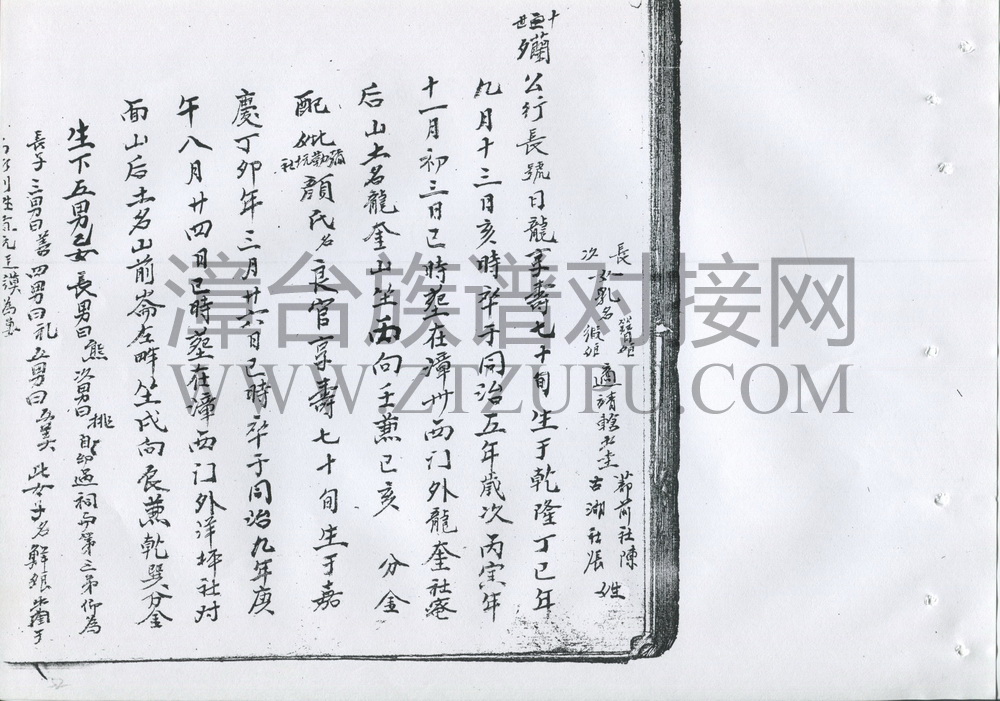 長 女乳名 緞娘 適靖轄 節前社陳
次 古湖社張 姓
十世 公行長號日龍享壽七十旬生于乾隆丁巳年
九月十三日亥時卒于同治五年歲次丙寅年
十一月初三日巳時塟在漳州西门外龍奎社
后山土名龍奎山坐丙向壬兼巳亥 分金
配妣 社 顏氏名良官享壽七十旬生于嘉
慶丁卯年三月廿六日巳時卒于同治九年庚
午八月廿四日巳時塟在漳西门外洋坪社对
面山后土名山前崙左畔坐 向艮兼乾巽分金
生下五男 女 長男曰熊次男曰桃 過祠 第三弟 為
長子三男曰善四男曰礼五男曰 此女子名 娘 于
漳台族谱对接网
WWW.ZTZUPU.COM
52